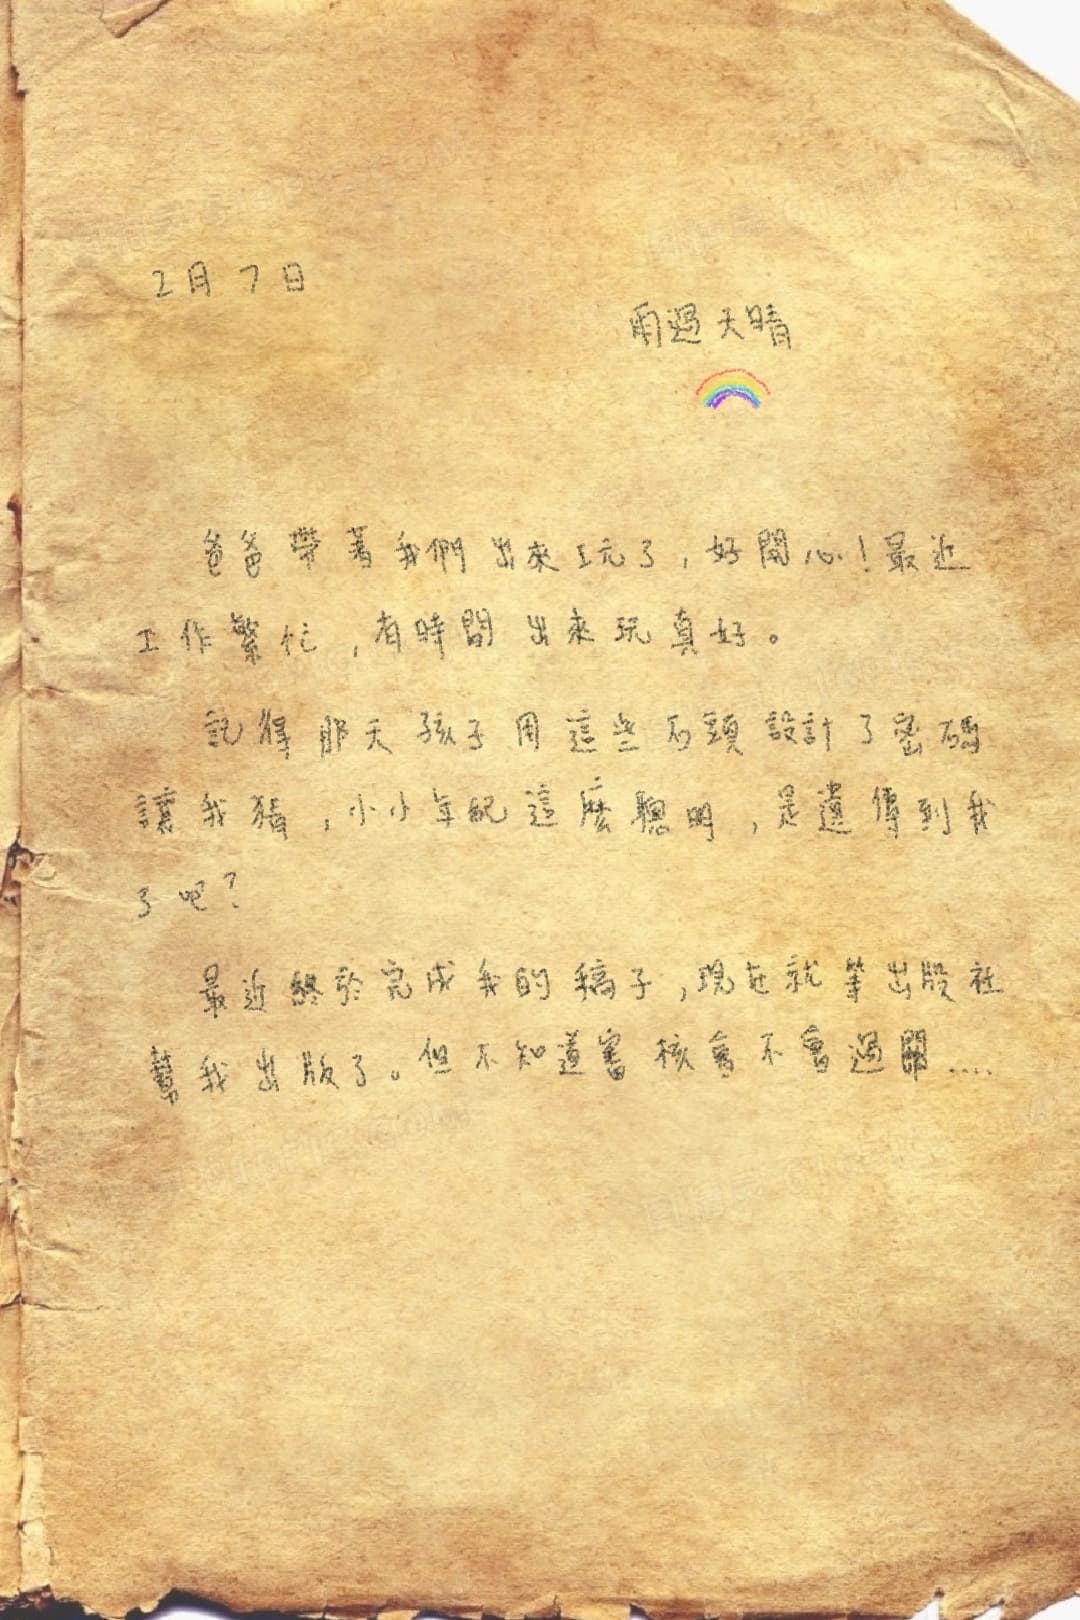 2月7日
雨過天晴
爸爸帶著我們出來玩了，好開心！最近
工作繁忙，有時間出來玩真好。
記得那天孩子用這些石頭設計了密碼
讓我猜，小小年紀這麼聰明，是遺傳到我
了吧？
最近終於完成我的稿子，現在就等出版社
幫我出版了。但不知道審核會不會過關....